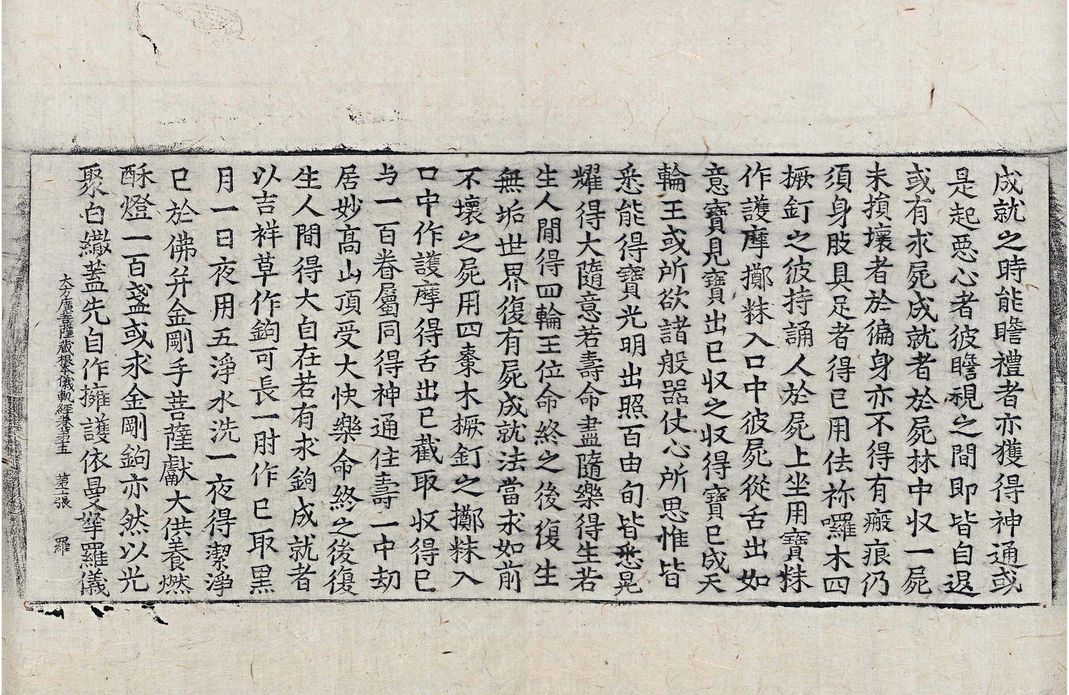 成就之時能瞻禮者亦獲得神通或
是起惡心者彼瞻視之間即皆自退
或有求屍成就者於屍林中収一屍
未損壞者於徧身亦不得有瘢痕仍
須身肢具足者得已用佉祢囉木四
橛釘之彼持誦人於屍上坐用寶粖
作護摩擲粖入口中彼屍從舌出如
意寶見寶出已収之収得寶已成天
輪王或所欲諸般器仗心所思惟皆
悉能得寶光明出照百由旬皆悉晃
耀得大隨意若壽命盡隨樂得生若
生人閒得四輪王位命終之後復生
無垢世界復有屍成就法當求如前
不壞之屍用四棗木橛釘之擲粖入
口中作護摩得舌出已截取収得已
与一百眷屬同得神通住壽一中劫
居妙髙山頂受大快樂命終之後復
生人閒得大自在若有求鉤成就者
以吉祥草作鉤可長一肘作已取黑
月一日夜用五淨水洗一夜得潔淨
已於佛并金剛手菩薩獻大供養燃
酥燈一百盞或求金剛鉤亦然以光
聚白繖蓋先自作擁護依曼拏羅儀
大方廣菩薩藏根本儀軌經卷 第二張 羅